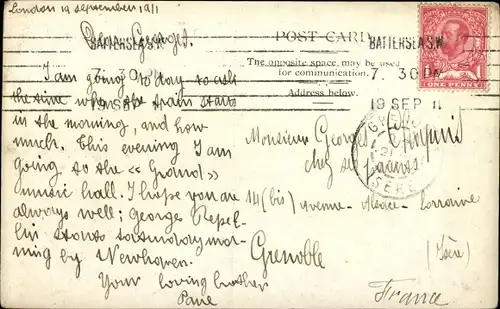 London 19 september 1911
Dear Georges.
I am going to day to ask
the time when the train starts
in the morning, and how
much. This evening I am
going to the « Grand »
music hall. I hope you are
always well; Georges Repel-
lin starts saturday mor-
ning by Newhaven.
Your loving brother
POST CARD
The opposite space, may be used
for communication.
Address below.
BATTERSEA S.W.
7. 30 PM
19 SEP 11
BATTERSEA S.W.
7. 30 PM
19 SEP 11
ONE PENNY
Monsieur Georges
chez ses parents
14 (bis) avenue Alsace-Lorraine
Grenoble
(Isère)
France
GRENOBLE
ISERE